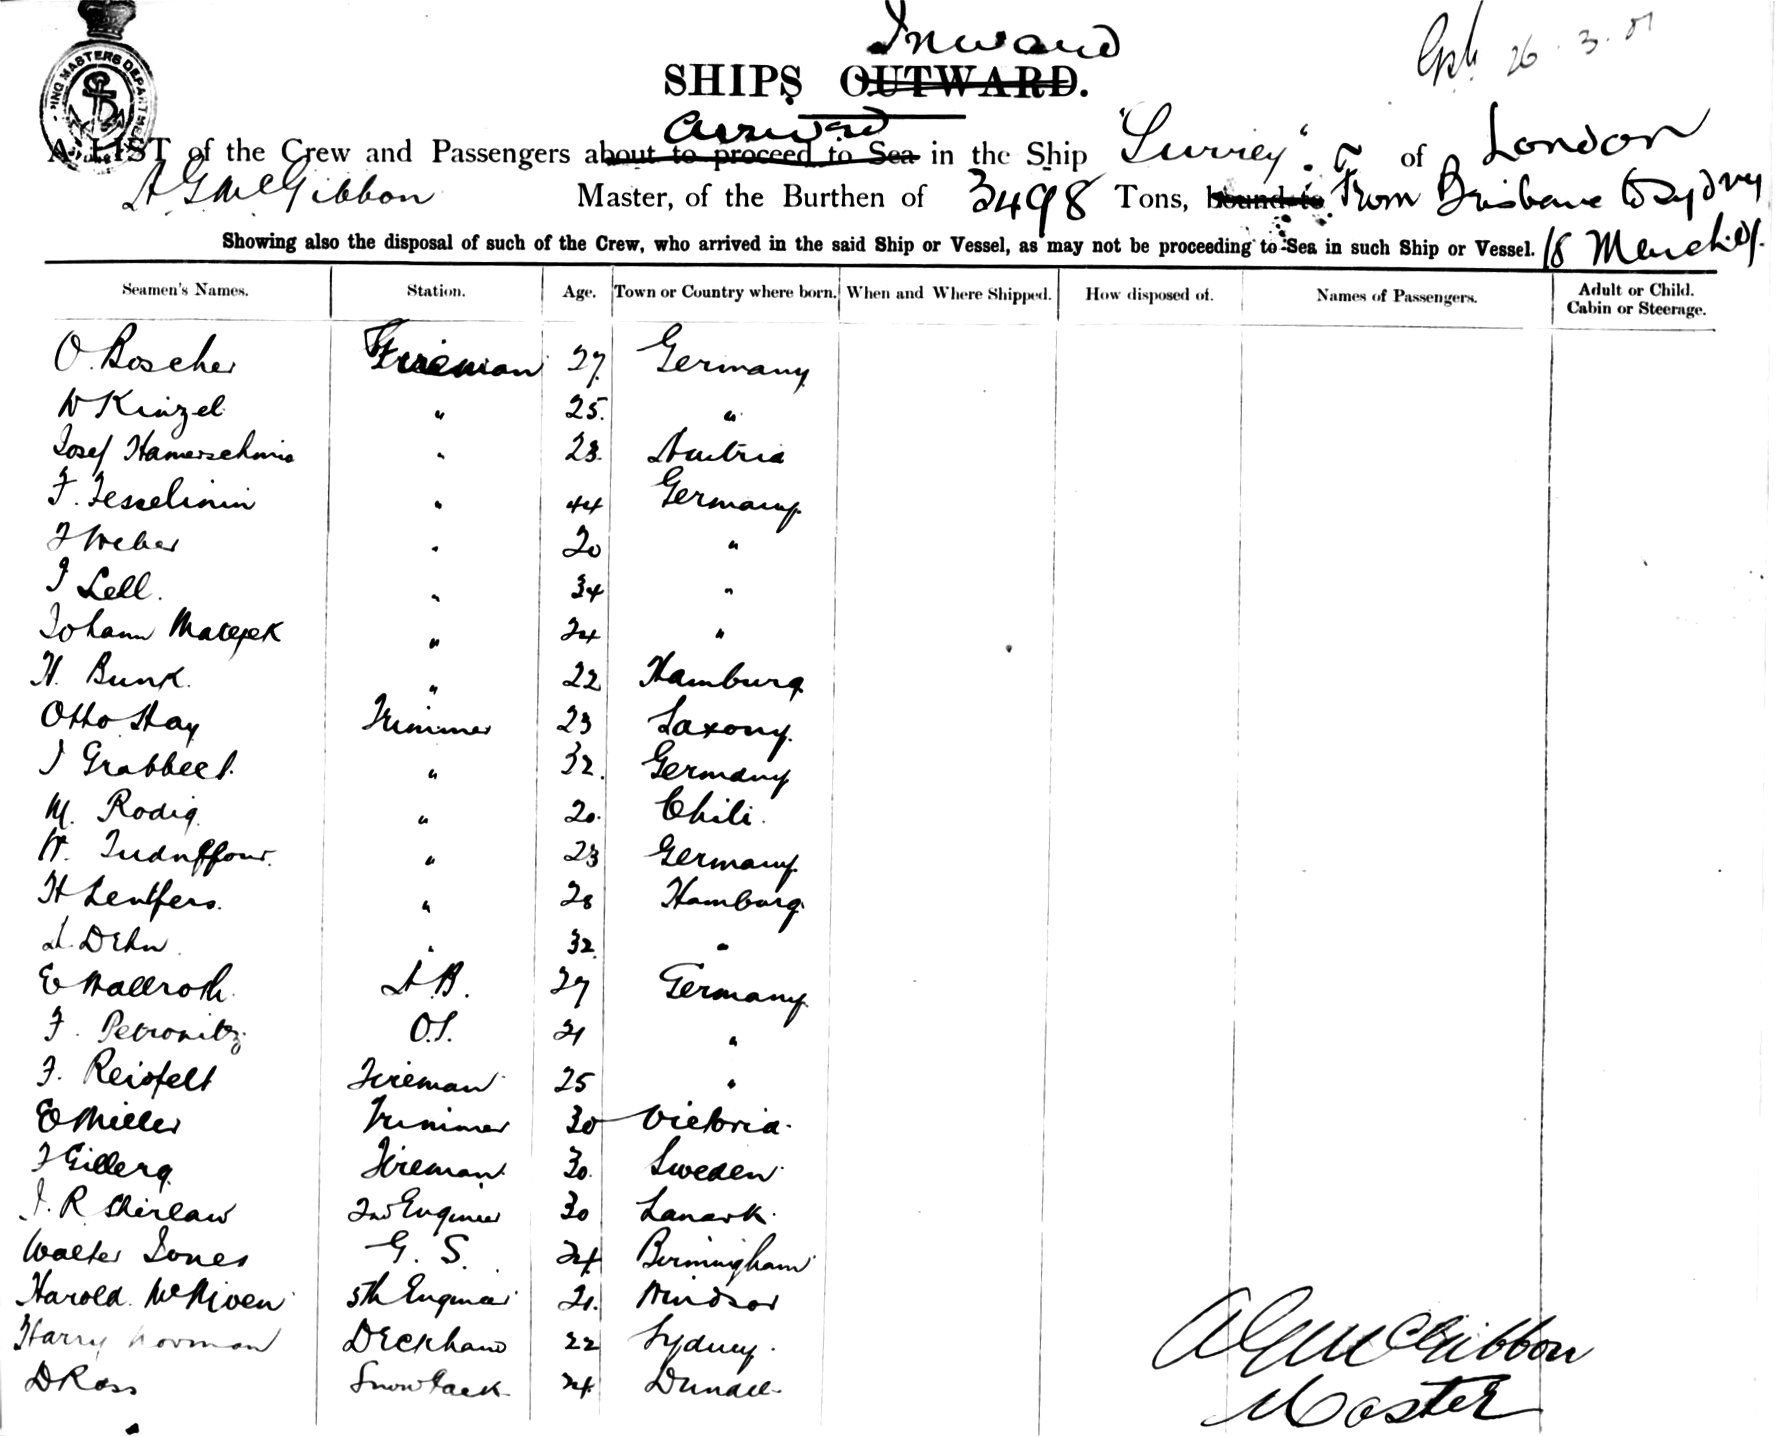 Inward
26.3.01
SHIPS OUTWARD.
arrived
A LIST of the Crew and Passengers about to proceed to Sea in the Ship "Surrey" of London
A G McGibbon Master, of the Burthen of 3498 Tons, bound to From Brisbane to Sydney
Showing also the disposal of such of the Crew, who arrived in the said Ship or Vessel, as may not be proceeding to Sea in such Ship or Vessel. 18 March 01.
Seamen's Names. Station. Age. Town or Country where born. When and Where Shipped. How disposed of. Names of Passengers. Adult or Child. Cabin or Steerage.
O. Boscher Fireman 27 Germany
W Kinzel " 25 "
Josef Hamerschmid " 23 Austria
F. " 44 Germany
F Weber " 20 "
J Lell. " 34 "
Johann Matejek " 24 "
H. Bunk. " 22 Hamburg
Otto Hay Trimmer 23 Saxony.
J " 32 Germany
M. Rodig " 20 Chili.
W. " 23 Germany
H Lentfers. " 28 Hamburg
L. Dehn " 32 "
E Wallroth. A.B. 27 Germany
F. Petronitz O.S. 21 "
F. Reisfelt Fireman 25 "
E Miller Trimmer 30 Victoria.
F Gillerg Fireman 30 Sweden
J. R Shirlaw 2nd Engineer 30 Lanark.
Walter Jones G. S. 24 Birmingham
Harold McNiven 5th Engineer 21. Windsor
Harry Norman Deckhand 22 Sydney.
D Ross 24 Dundee
A G McGibbon
Master